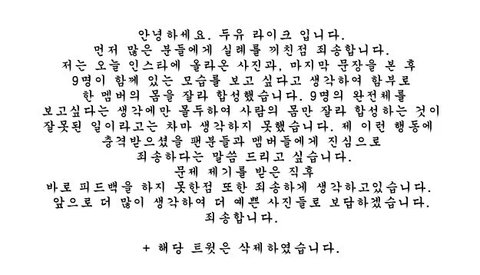 안녕하세요. 두유 라이크 입니다.
먼저 많은 분들에게 실례를 끼친점 죄송합니다.
저는 오늘 인스타에 올라온 사진과, 마지막 문장을 본 후
9명이 함께 있는 모습을 보고 싶다고 생각하여 함부로
한 멤버의 몸을 잘라 합성했습니다. 9명의 완전체를
보고싶다는 생각에만 몰두하여 사람의 몸만 잘라 합성하는 것이
잘못된 일이라고는 차마 생각하지 못했습니다. 제 이런 행동에
충격받으셨을 팬분들과 멤버들에게 진심으로
죄송하다는 말씀 드리고 싶습니다.
문제 제기를 받은 직후
바로 피드백을 하지 못한점 또한 죄송하게 생각하고있습니다.
앞으로 더 많이 생각하여 더 예쁜 사진들로 보답하겠습니다.
죄송합니다.
+ 해당 트윗은 삭제하였습니다.